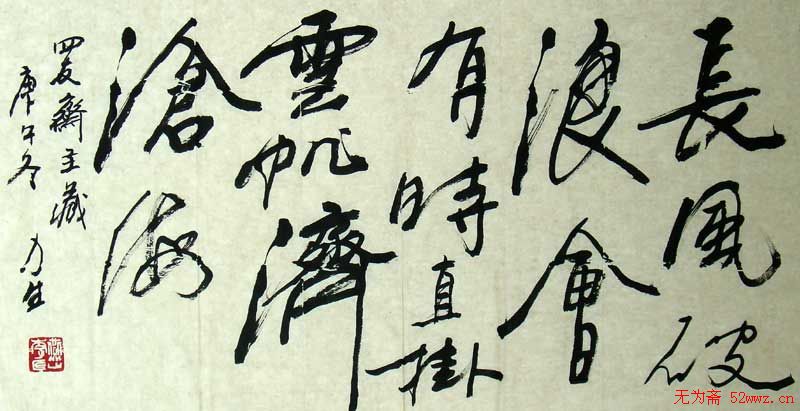 長風破
浪會
有時直掛
雲帆濟
滄海
四友齋主藏
庚午冬 乃生
无为斋 52wwz.cn